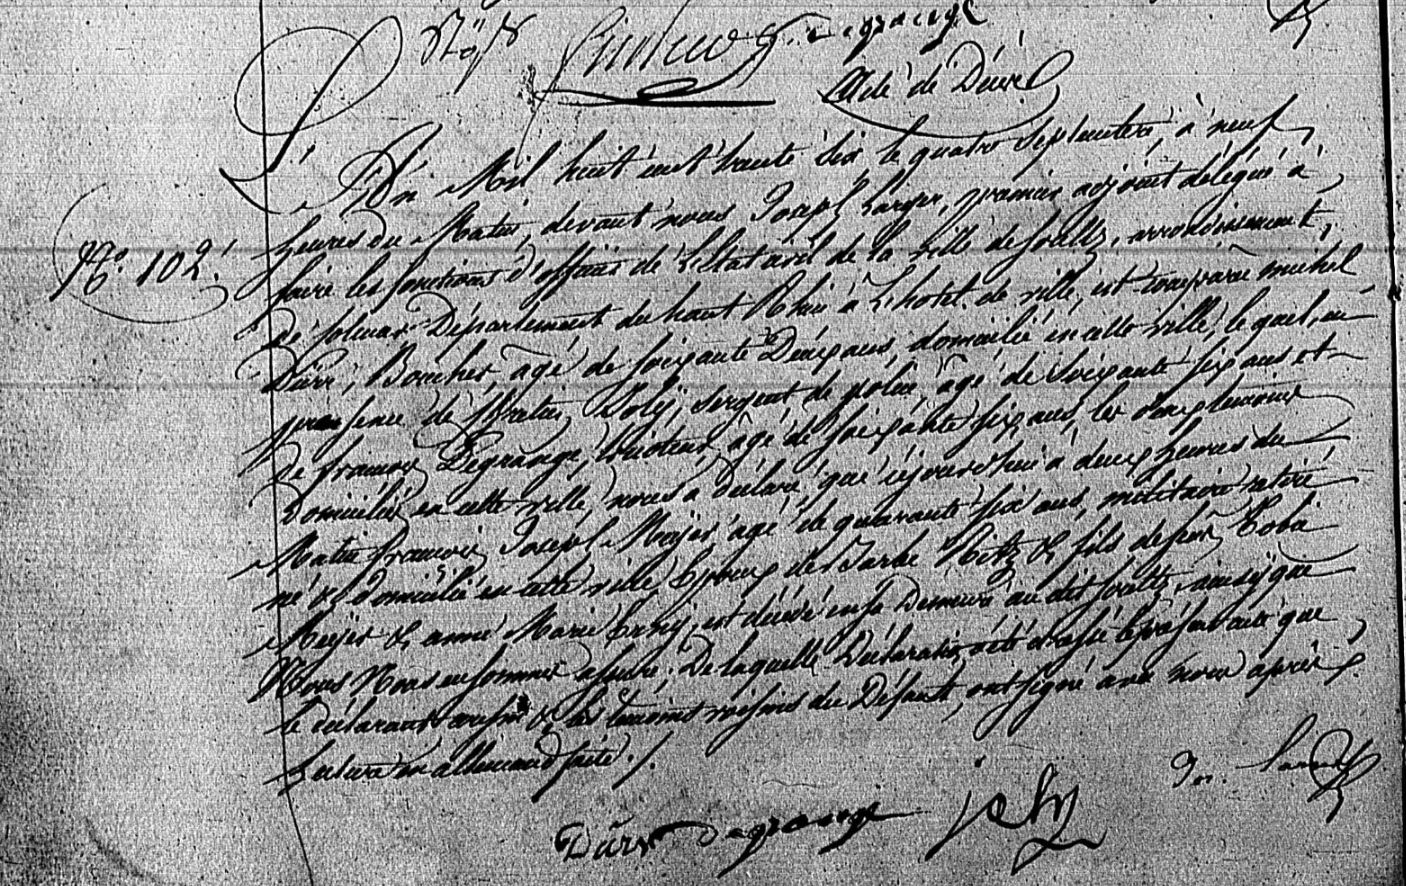 Degrange
Acte de Décès
L'An Mil huit cent trente six le quatre Septembre, à neuf
heures du Matin, devant nous Joseph Larger, premier adjoint délégué à
faire les fonctions d'officier de L'Etat civil de la ville de Soultz, arrondissement
de Colmar Département du haut Rhin à L'hotel de ville, est comparu michel
Dürr, Boucher, agé de soixante Deux ans, domicilié en cette ville, lequel, en
presence de sergent de police, agé de Soixante six ans et
de françois Degrange, agé de soixante six ans, les deux temoins
Domiciliés en cette ville, nous a déclaré, que cejourd'hui à deux heures du
Matin françois Joseph Meyer, agé de quarante six ans, militaire retiré
né & domicilié en cette ville, Epoux de Barbe & fils de feu Tobie
Meyer & anne Marie est décédé en sa Demeure au dit Soultz, ainsy que
Nous Nous en sommes assuré; De laquelle Déclaration été dressé le présent acte que
le déclarant cousin & les temoins voisins du Défunt, ont signé avec nous après
Lecture en allemand faite ./.
No. 102.
Dürr Degrange